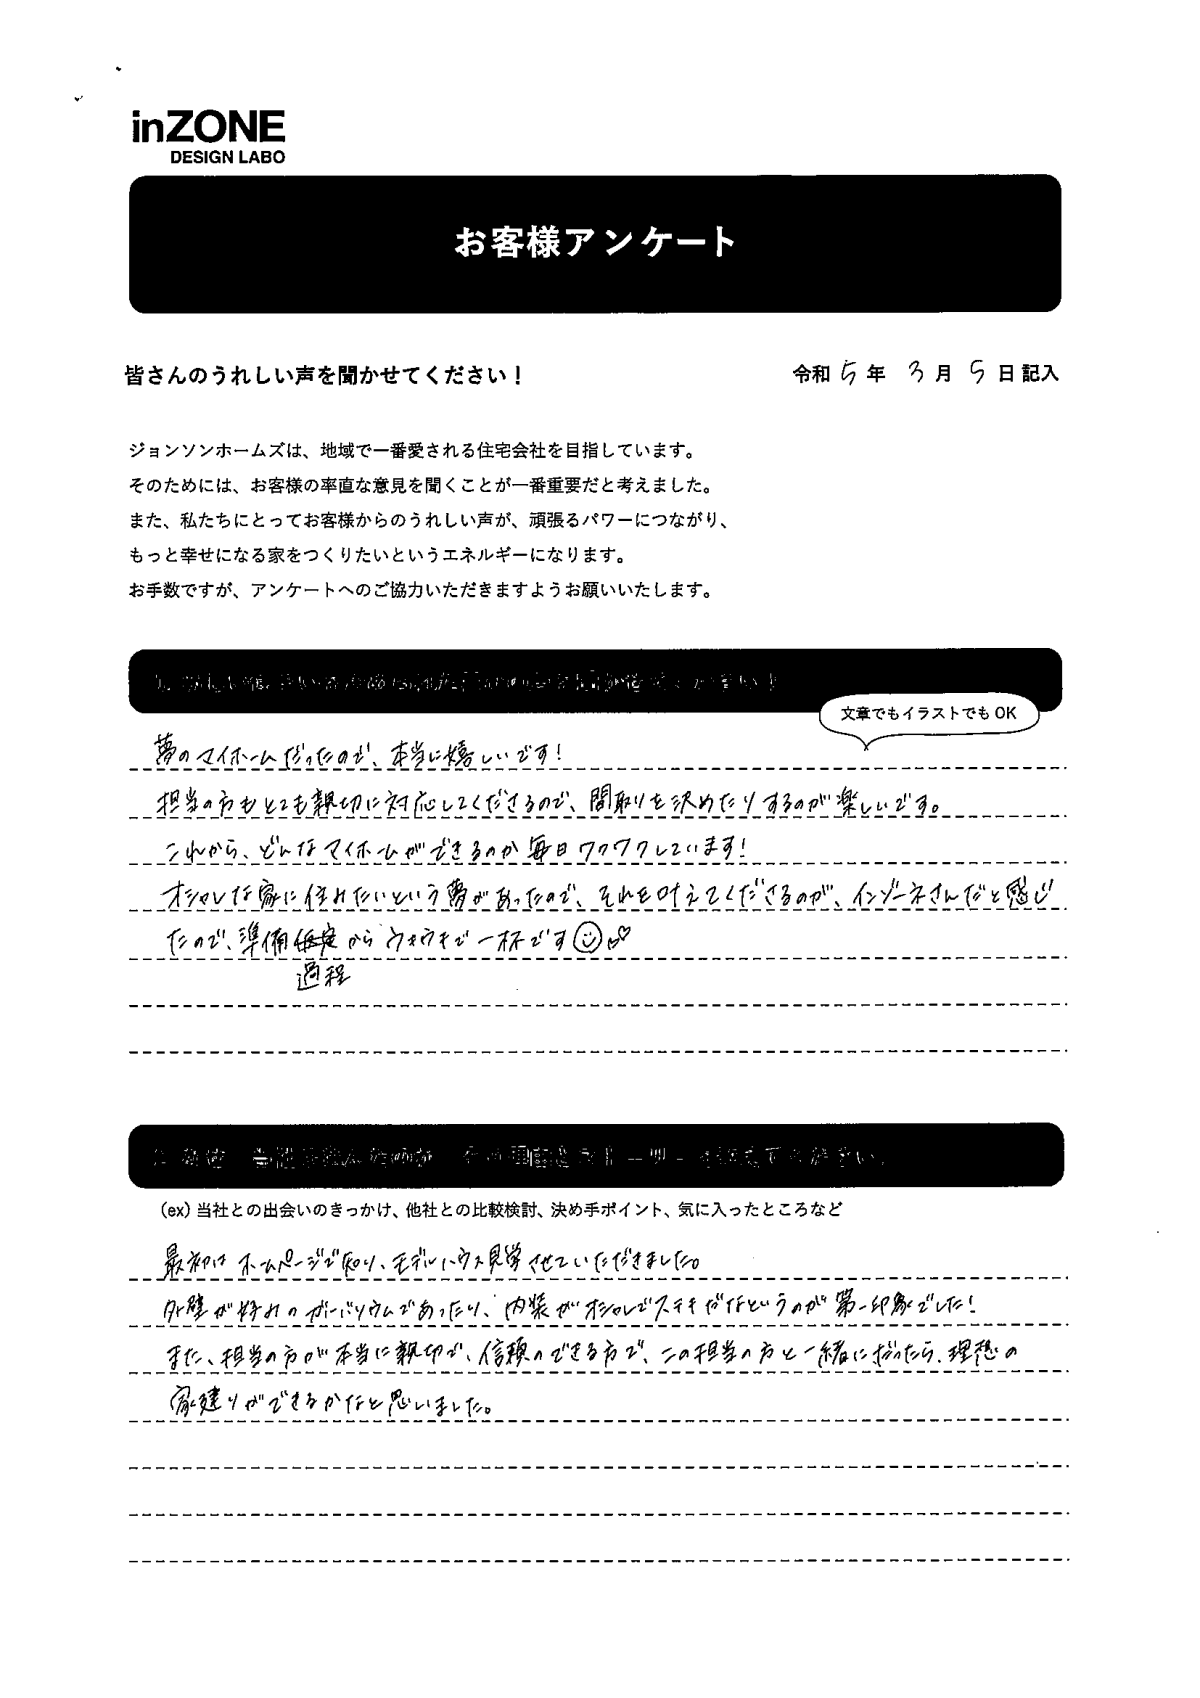 inZONE
DESIGN LABO
お客様アンケート
皆さんのうれしい声を聞かせてください！
令和 5 年 3 月 5 日 記入
ジョンソンホームズは、地域で一番愛される住宅会社を目指しています。
そのためには、お客様の率直な意見を聞くことが一番重要だと考えました。
また、私たちにとってお客様からのうれしい声が、頑張るパワーにつながり、
もっと幸せになる家をつくりたいというエネルギーになります。
お手数ですが、アンケートへのご協力いただきますようお願いいたします。
文章でもイラストでも OK
夢のマイホームだったので、本当に嬉しいです！
担当の方もとても親切に対応してくださるので、間取りを決めたりするのが楽しいです。
これから、どんなマイホームができるのか毎日ワクワクしています！
オシャレな家に住みたいという夢があったので、それを叶えてくださるのが、インゾーネさんだと感じ
たので、準備 からウキウキで一杯です
過程
（ex）当社との出会いのきっかけ、他社との比較検討、決め手ポイント、気に入ったところなど
最初はホームページで知り、モデルハウス見学させていただきました。
外壁が好みのガルバリウムであったり、内装がオシャレでステキだなというのが第一印象でした！
また、担当の方が本当に親切で、信頼のできる方で、この担当の方と一緒にだったら、理想の
家建りができるかなと思いました。